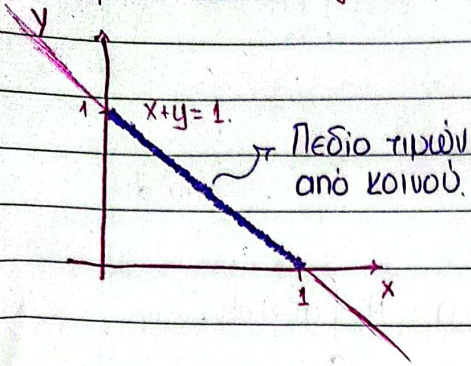 y
1 x+y=1.
Πεδίο τιμών
από κοινού.
1
x